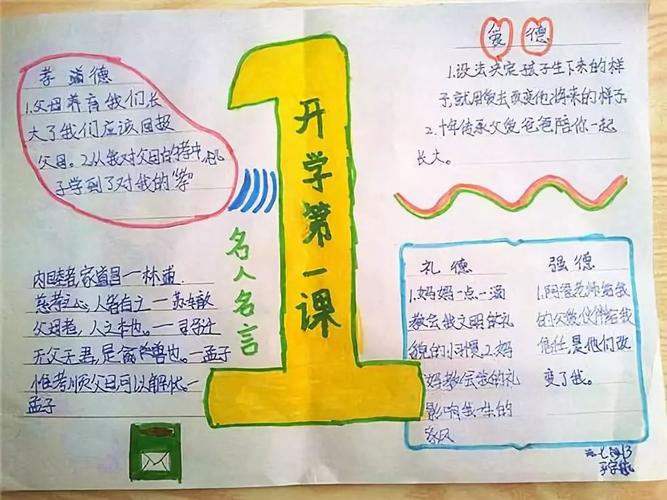 孝道德
1.父母养育我们长
大了我们应该回报
父母。2.从我对父母的孝中，儿
子学到了对我的"孝"
开学第一课
名人名言
内睦者家道昌一林逋
慈孝之心，人皆有之一苏辙
父母者，人之本也。一司马迁
无父子君，是禽兽也。一孟子
惟孝顺父母可以解忧一
孟子
爱德
1.没法决定孩子生下来的样
子，就用爱去改变他将来的样子
2.十年传承父爱爸爸陪你一起
长大。
礼德
1.妈妈一点一滴
教会我文明的礼
貌的小习惯。2.妈
妈教会我的礼
影响我一生的
家风
强德
1.阿爸老师给我
的父爱，伙伴给我
信任，是他们改
变了我。